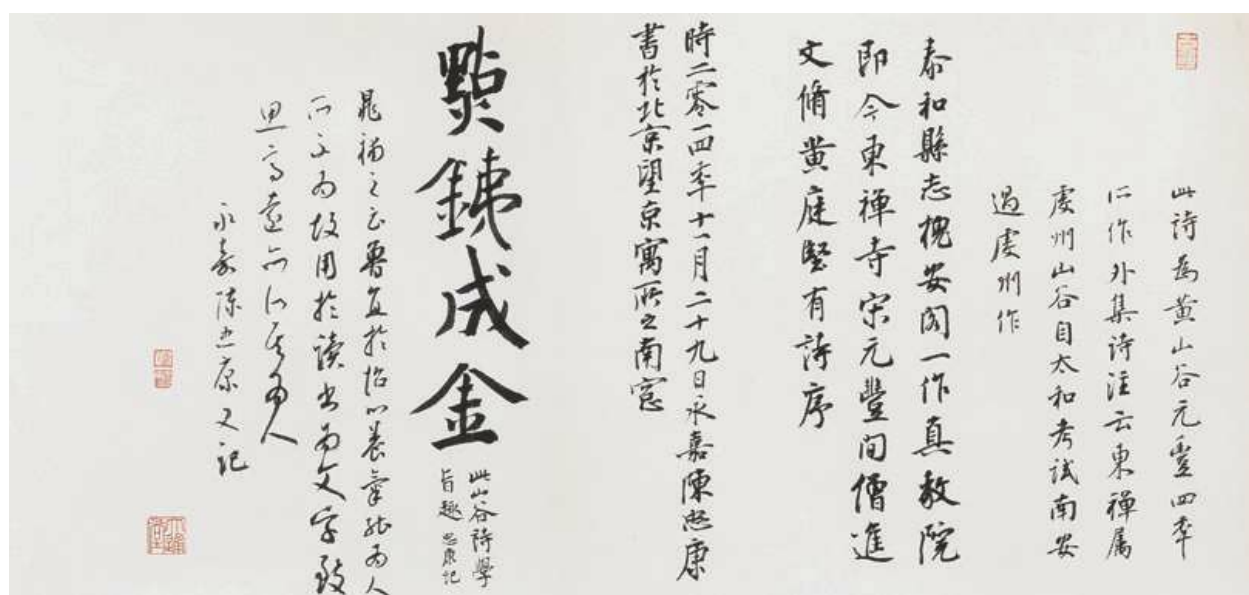 此詩爲黄山谷元豐四年
所作外集詩注云東禪属
虔州山谷自太和考試南安
過虔州作
泰和縣志槐安閣一作真教院
即今東禪寺宋元豐間僧進
文脩黄庭堅有詩序
時二零一四年十一月二十九日永嘉陳忠康
書於北京望京寓所之南窓
點鐵成金
此山谷詩學
旨趣 忠康記
晁補之云魯直於怡心養氣能爲人
所不爲故用於讀书爲文字致
思高遠亦似其爲人
永嘉陳忠康又記